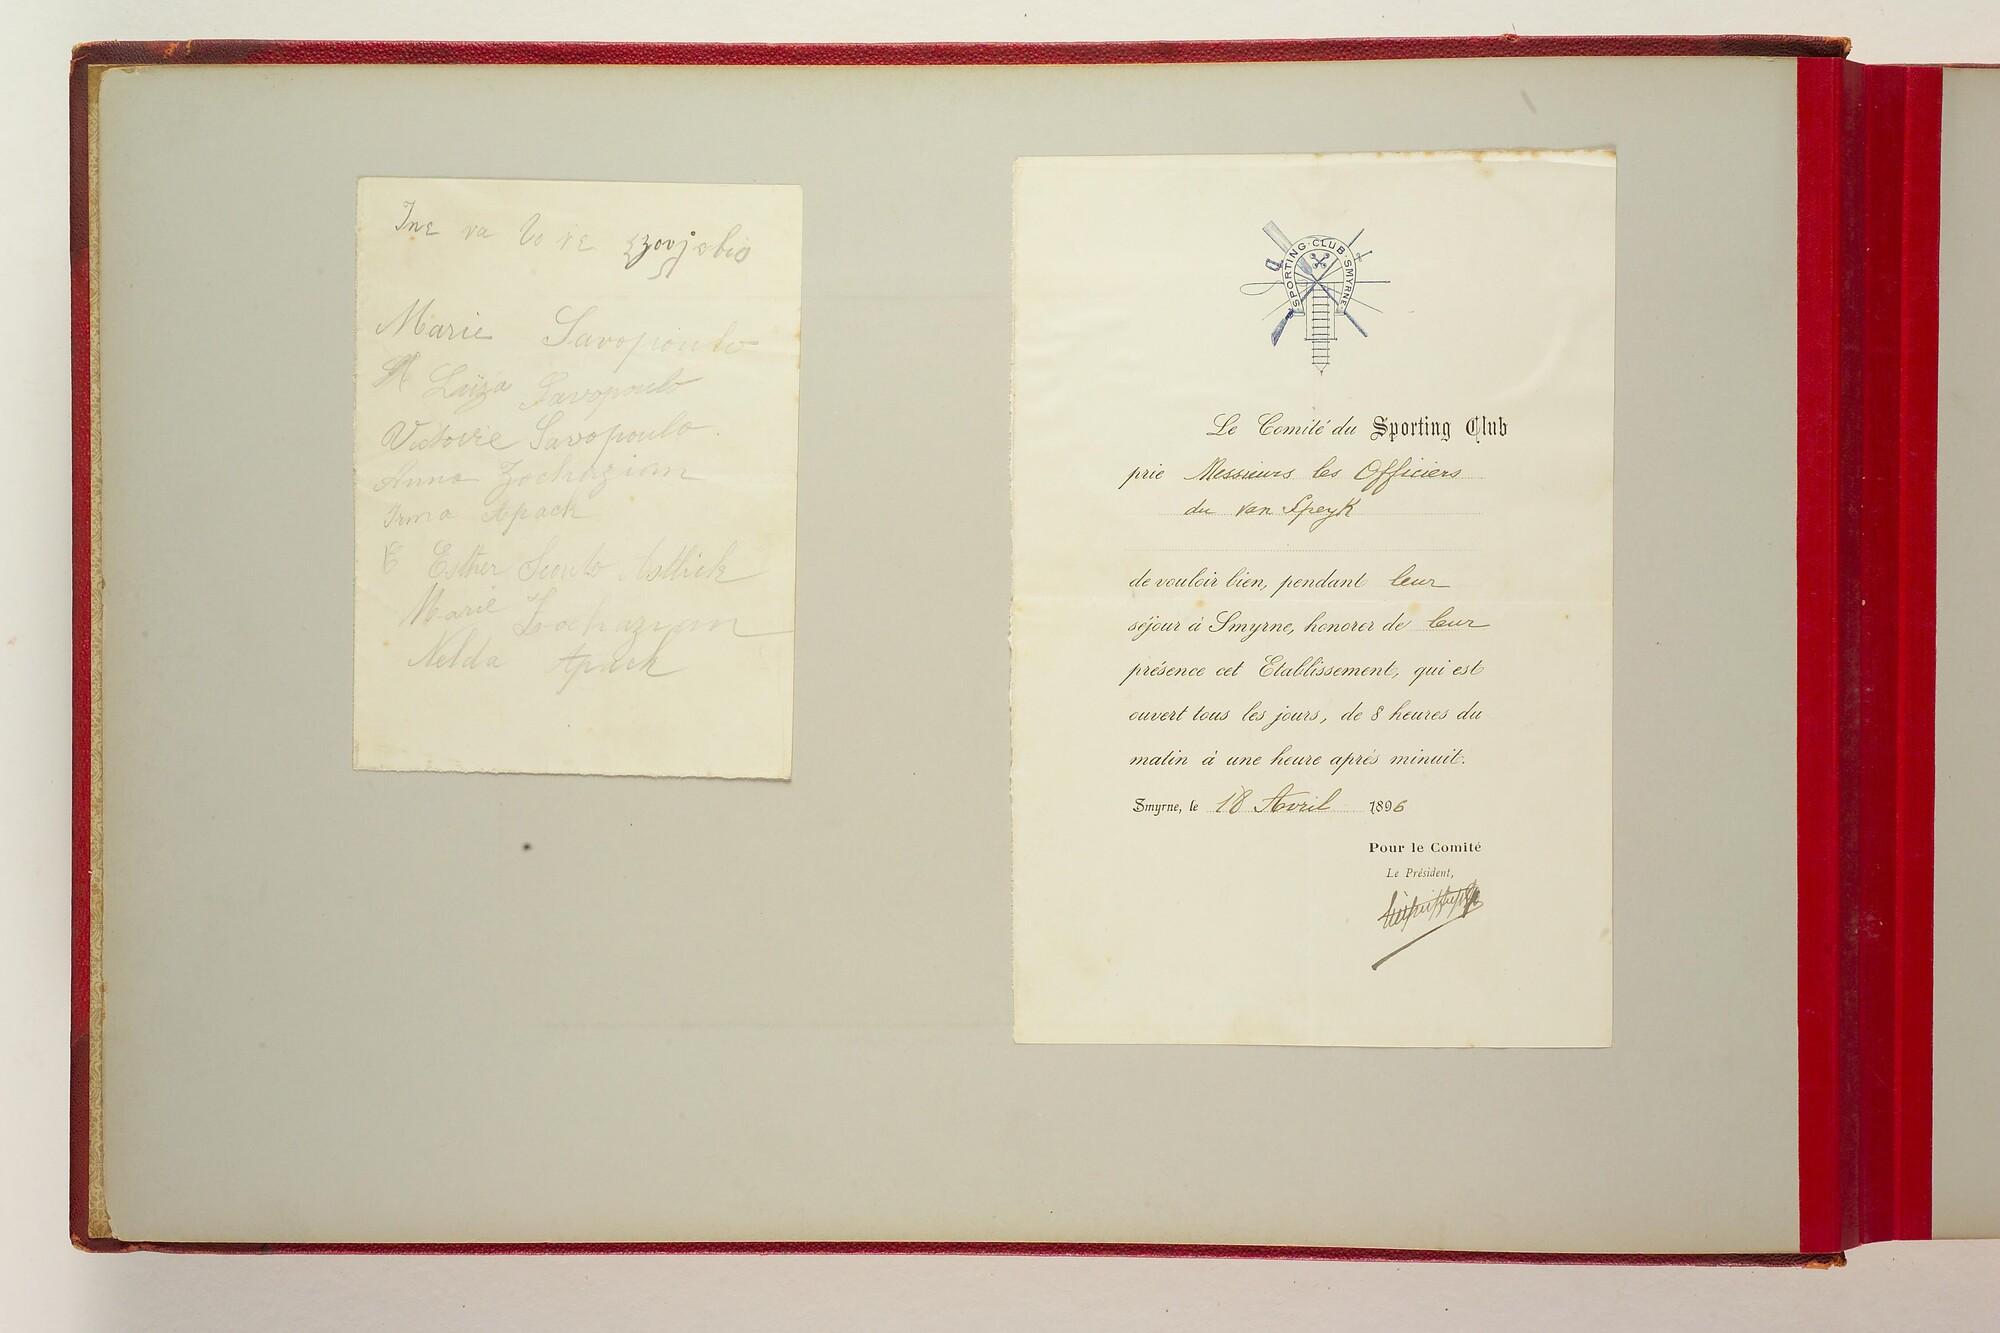 Marie Savopoulo
Luiza Savopoulo
Victorie Savopoulo
Anna Zochazian
Irma Apack
Esther
Marie Zochazian
Nelda Apack
SPORTING·CLUB·SMYRNE
Le Comité du Sporting Club
prie Messieurs les Officiers
du van Speyk
de vouloir bien, pendant leur
séjour à Smyrne, honorer de leur
présence cet Etablissement, qui est
ouvert tous les jours, de 8 heures du
matin à une heure après minuit.
Smyrne, le 18 Avril 1896
Pour le Comité
Le Président,